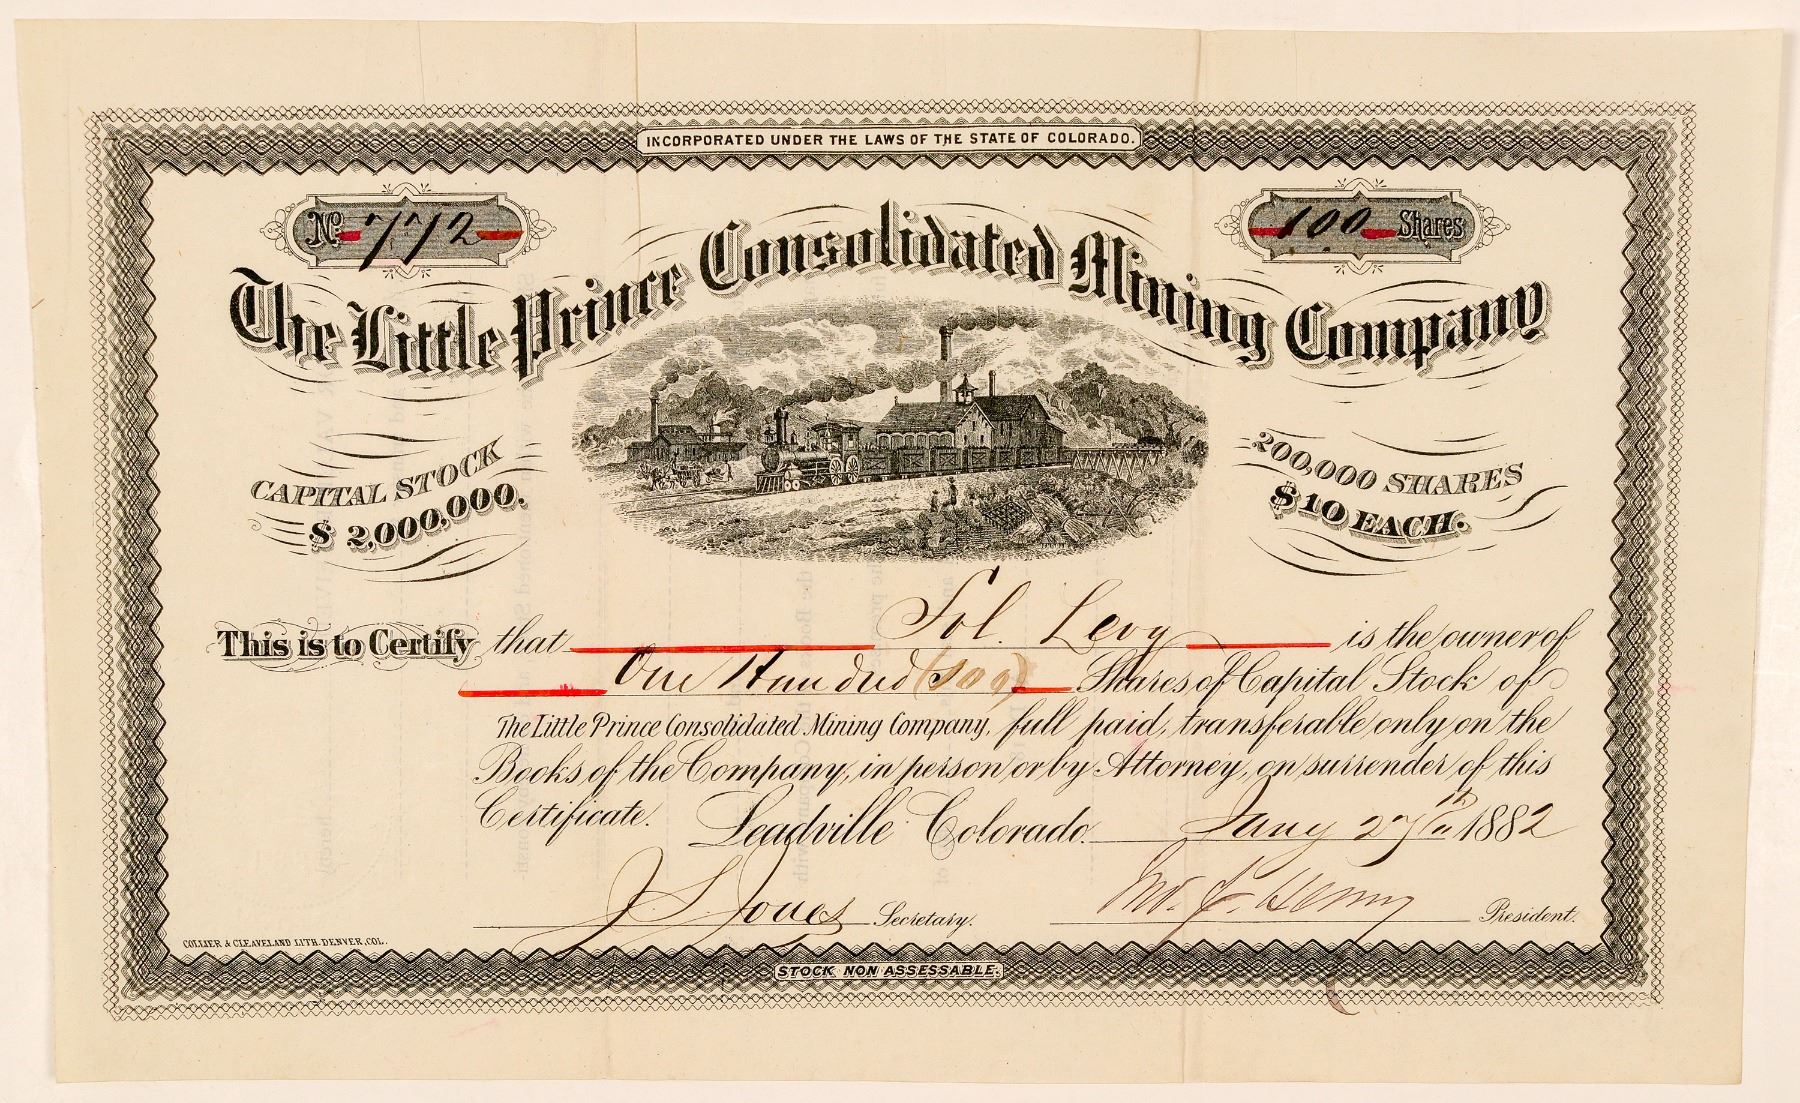 INCORPORATED UNDER THE LAWS OF THE STATE OF COLORADO.
No 772
100 Shares
The Little Prince Consolidated Mining Company
CAPITAL STOCK
$ 2,000,000.
200,000 SHARES
$10 EACH.
This is to Certify that Sol. Levy is the owner of
One Hundred (100) Shares of Capital Stock of
The Little Prince Consolidated Mining Company, full paid, transferable only on the
Books of the Company, in person or by Attorney, on surrender of this
Certificate. Leadville Colorado. Jany 27th 1882
J. S. Jones Secretary. Jno. J. Henry President.
COLLIER & CLEAVELAND LITH. DENVER, COL.
STOCK NON ASSESSABLE.